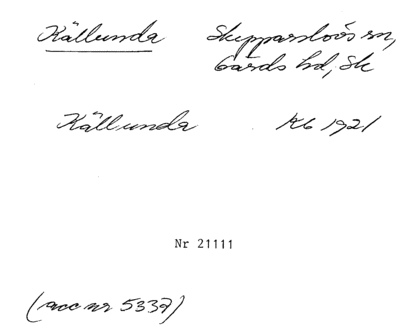 Källunda Skepparslövs sn,
Gärds hd, Sk
Källunda Kb 1921
Nr 21111
(acc nr 5337)